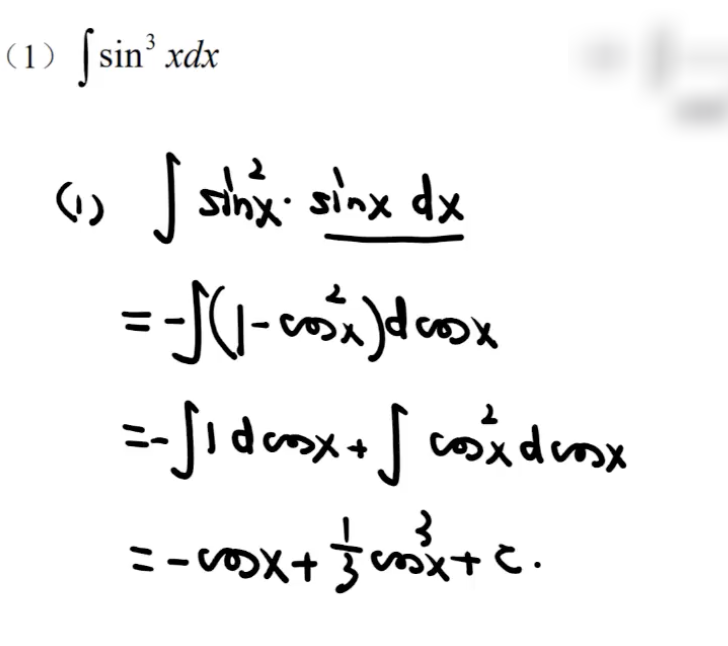 （1）∫sin³ xdx
(1) ∫ sin²x · sinx dx
= -∫(1 - cos²x)dcosx
= -∫1 dcosx + ∫ cos²x dcosx
= -cosx + 1/3 cos³x + C.